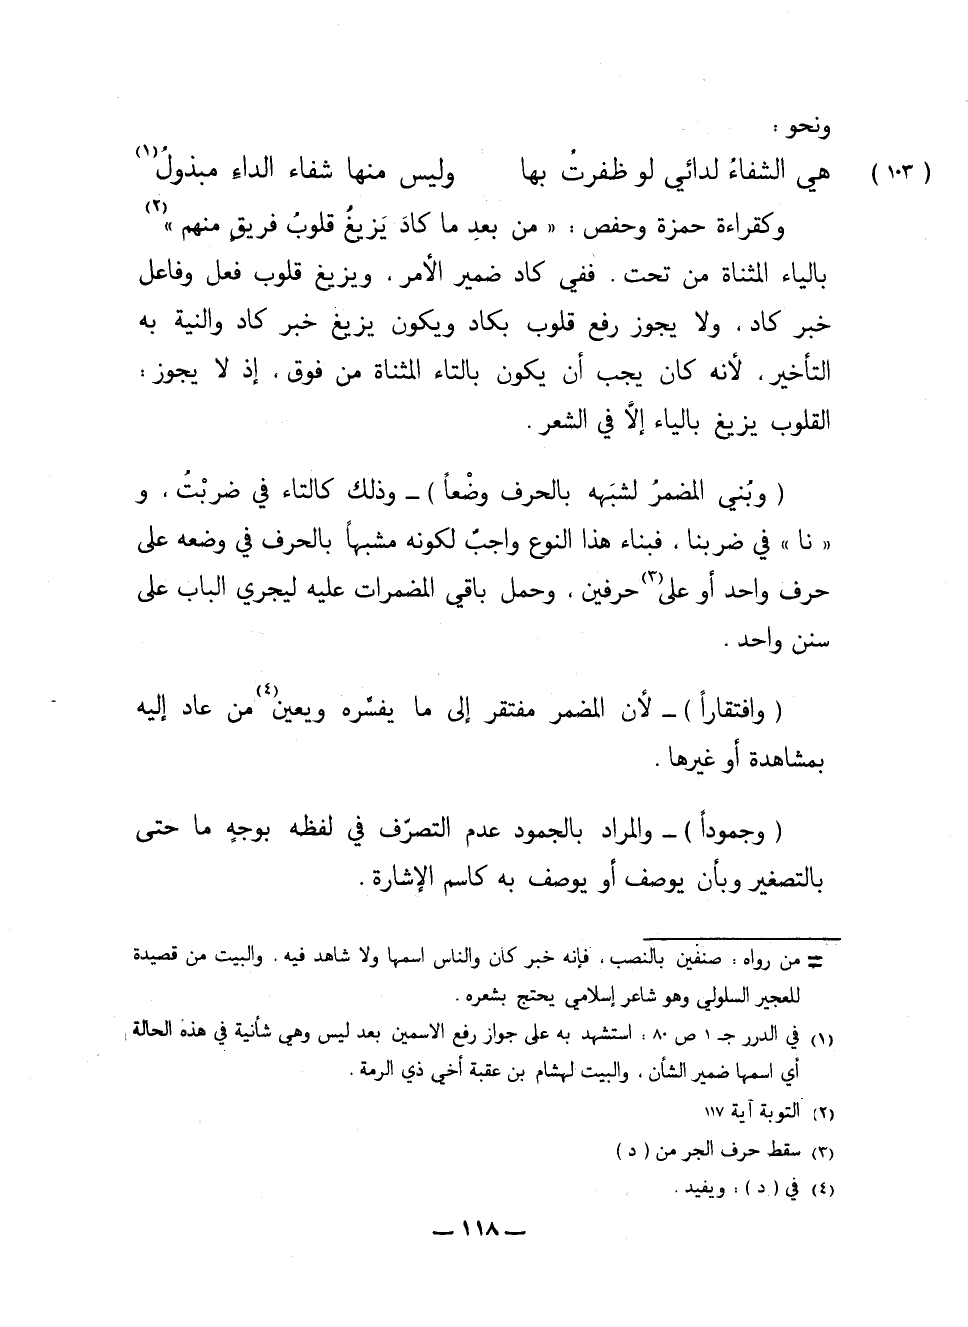 ونحو :
( ١٠٣ ) هي الشفاءُ لدائي لو ظفرتُ بها وليس منها شفاء الداءِ مبذولُ(١)
وكقراءة حمزة وحفص : « من بعدِ ما كادَ يَزيغُ قلوبُ فريقٍ منهم »(٢)
بالياء المثناة من تحت . ففي كاد ضمير الأمر ، ويزيغ قلوب فعل وفاعل
خبر كاد ، ولا يجوز رفع قلوب بكاد ويكون يزيغ خبر كاد والنية به
التأخير ، لأنه كان يجب أن يكون بالتاء المثناة من فوق ، إذ لا يجوز :
القلوب يزيغ بالياء إلَّا في الشعر .
( وبُني المضمرُ لشبَهه بالحرف وضْعاً ) ــ وذلك كالتاء في ضربْتُ ، و
« نا » في ضربنا ، فبناء هذا النوع واجبٌ لكونه مشبهاً بالحرف في وضعه على
حرف واحد أو على(٣) حرفين ، وحمل باقي المضمرات عليه ليجري الباب على
سنن واحد .
( وافتقاراً ) ــ لأن المضمر مفتقر إلى ما يفسّره ويعين(٤) من عاد إليه
بمشاهدة أو غيرها .
( وجموداً ) ــ والمراد بالجمود عدم التصرّف في لفظه بوجهٍ ما حتى
بالتصغير وبأن يوصف أو يوصف به كاسم الإشارة .
= من رواه : صنفين بالنصب ، فإنه خبر كان والناس اسمها ولا شاهد فيه . والبيت من قصيدة
للعجير السلولي وهو شاعر إسلامي يحتج بشعره .
(١) في الدرر جـ ١ ص ٨٠ : استشهد به على جواز رفع الاسمين بعد ليس وهي شأنية في هذه الحالة ،
أي اسمها ضمير الشأن ، والبيت لهشام بن عقبة أخي ذي الرمة .
(٢) التوبة آية ١١٧
(٣) سقط حرف الجر من ( د )
(٤) في ( د ) : ويفيد .
ــ ١١٨ ــ